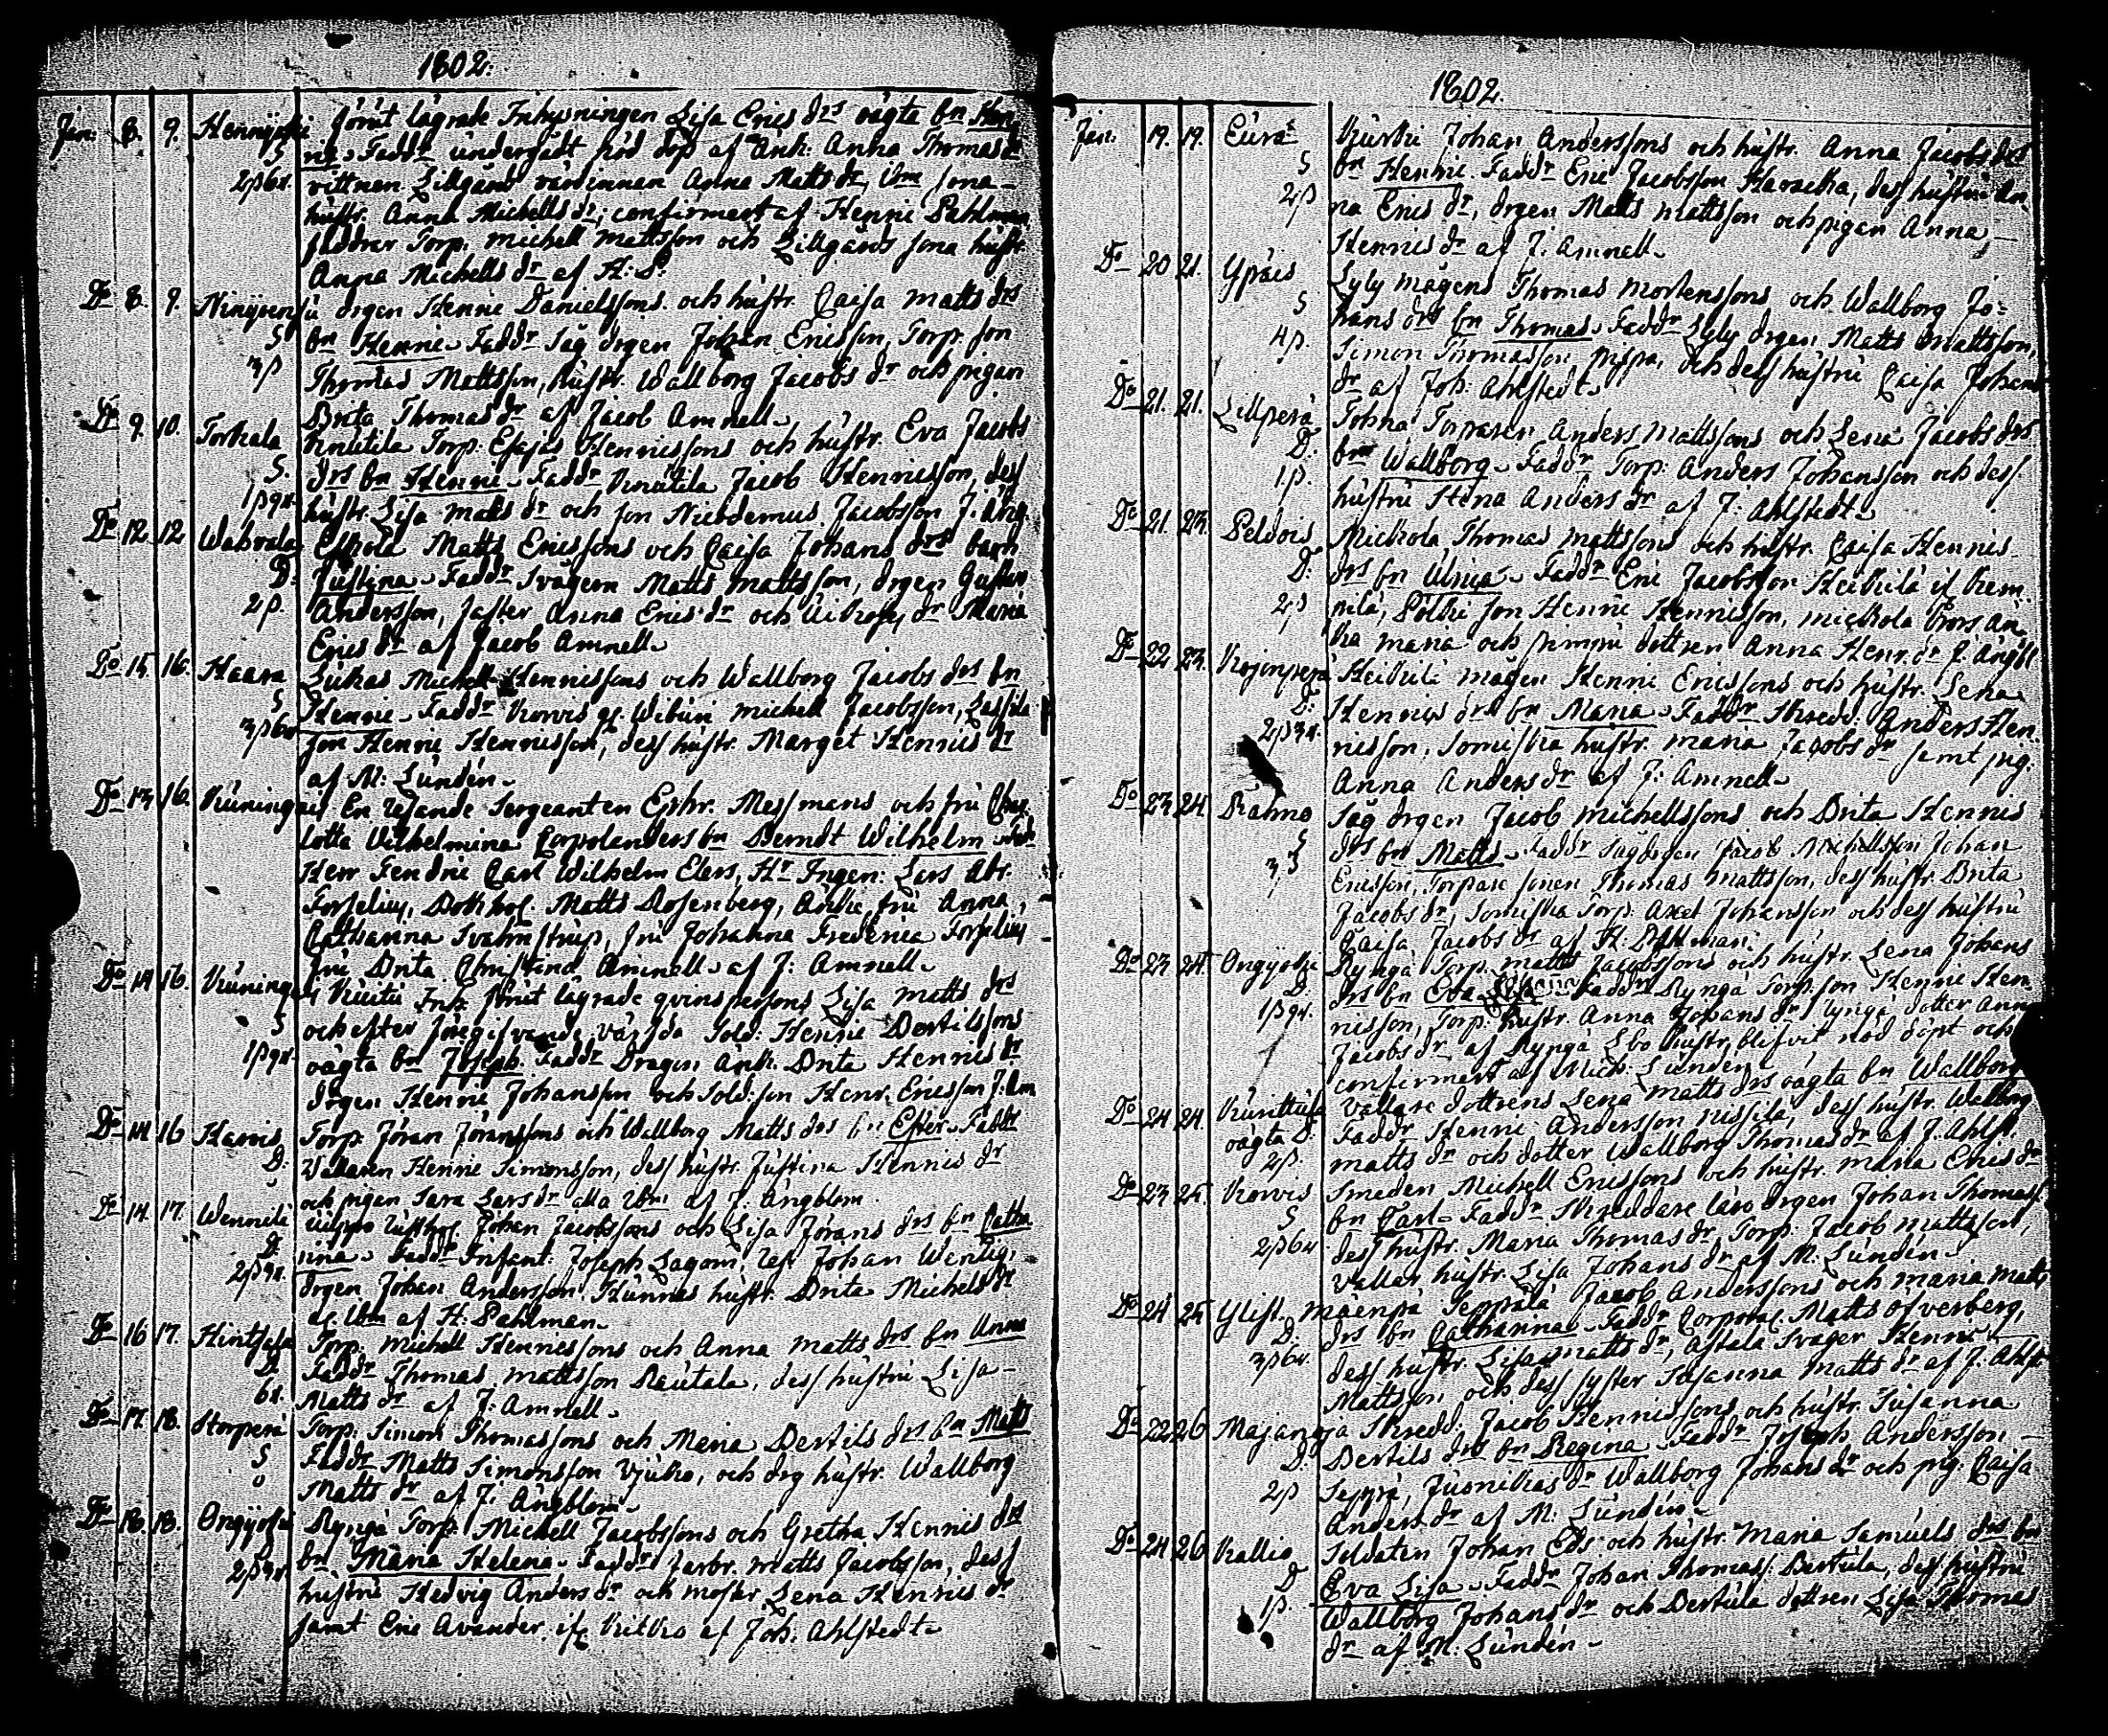 1802.
Jan: 8. 9. Hennijoki förut lägrade Inhysningen Lisa Erics drs oägta bn Hen
S ric. Faddr undergådt nöd dop af Ank: Anna Thomas dr
2ß6r. vittnen Lillgårds värdinnan Anna Matts dr, ibm sona
hustr. Anna Michells dr; confirmert af Henric Pahlman,
faddrar Torp. michell mattsson och Lillgårds sona hustr.
Anna Michells dr af H: P.
Do 8. 9. Ninijoensu drgen Henric Danielssons och hustr. Caisa matts drs
S bn Henric Faddr Såg drgen Johan Ericsson, Torp. son
3ß Thomas Mattsson, hustr. Wallborg Jacobs dr och pigan
Brita Thomas dr af Jacob Amnell
Do 9. 10. Torkala Knutila Torp. Esajas Henricssons och hustr. Eva Jacobs
S. drs bn Henric Faddr Knutila Jacob Henricsson, dess
1ß9r. hustr. Lisa matts dr och son Nicodemus Jacobsson J. Äng
Do 12 12 Wahvala Eskola Matts Ericssons och Caisa Johans drs barn
D. Justina Faddr Svågern Matts mattsson, drgen Gustav
2ß. Andersson, faster Anna Erics dr och dr Maria
Erics dr af Jacob Amnell
Do 15. 16. Haara Lukas Michell Henricssons och Wallborg Jacobs drs bn
S Henric Faddr Korvis Michell Jacobsson, Lassila
3ß6r son Henric Henricsson, dess hustr. Marget Henrics dr
af M: Lundén
Do 13 16. Kuuningas En resande Sergeanten Ephr. Messmans och fru Char
lotta Vilhelmina bn Berndt Wilhelm Fad
Herr Fendric Carl Wilhelm Elers, Hr Ingen: Lars Abr.
Forselius, Matts Rosenberg, Änke fru Anna
Catharina Svahnström, fru Johanna Frederica Forselius
fru Brita Christina Amnell af J: Amnell
Do 14 16. Kuuningas Inh. förut lägrade qvinspersons Lisa matts drs
S och efter föregifvande Sold: Henric Bertilssons
1ß9r. oägta bn Joseph. Faddr Dragon Ank. Brita Henrics dr
drgen Henric Johansson och Sold: son Henr. Ericsson J: Am
Do 14 16 Karvis Torp. Jöran Jöranssons och Wallborg Matts drs bn Ester Faddr
D. Henric Simonsson, dess hustr. Justina Henrics dr
och pigan Sara Lars dr alla ibm af J. Ängblom
Do 14. 17. Wennilä Johan Jacobssons och Lisa Jörans drs bn Catha
D. rina. Faddr Infant: Joseph Lagom, Johan Wenlig,
2ß9r. drgen Johan Andersson, hustr. Brita Michels dr
af ibm af H. Pahlman
Do 16 17. Hintsala Torp. Michell Henricssons och Anna matts drs bn Anna
D. Faddr Thomas mattsson Rautala, dess hustru Lisa
6r. Matts dr af J. Amnell
Do 17. 18. Storperä Torp. Simon Thomassons och Maria Bertils drs bn Matts
S Faddr Matts Simonsson Vjuko, och drg hustr. Wallborg
Matts dr af J. Ängblom
Do 18. 18. Ongyoki Rynyä Torp. Michell Jacobssons och Gretha Henrics drs
bn Maria Helena Faddr farbr. matts Jacobsson, dess
2ß9r. hustru Hedvig Anders dr och moster Lena Henrics dr
samt Eric Avander af Joh. Ahlstedt
1802.
Jan. 19. 19. Eura Johan Anderssons och hustr. Anna Jacobs drs
S bn Henric. Faddr Eric Jacobsson Haveka, dess hustru An
2ß na Erics dr, drgen Matts mattsson och pigan Anna
Henrics dr af J. Amnell
Do 20 21. Ypäis Lyly mågens Thomas Mortenssons och Wallborg Jo=
S hans drs bn Thomas Faddr Lyly drgen Matts Mattsson,
4ß. Simon Thomasson Nispa, och dess hustru Caisa Johans
dr af Joh. Ahlstedt
Do 21. 21. Lillperä Tohna Torparen Anders Mattssons och Lena Jacobs drs
D. bn Wallborg Faddr Torp: Anders Johansson och dess
1ß. hustru Stina Anders dr af J: Ahlstedt
Do 21. 23. Peldois Mickola Thomas mattssons och hustr. Caisa Henrics
D. drs bn Ulrica Faddr Eric Jacobsson Heikkilä Kem
2ß pilä, Pölkki son Henric Henricsson, mickola
maria och dottren Anna Henr. dr J. Ängbl
Do 22 23. Kojonperä Heikkilä mågen Henric Ericssons och hustr. Lena
D. Henrics drs bn Maria Faddr Skredd: Anders Hen
2ß3r. ricsson, Somiska hustr. maria Jacobs dr samt pig:
Anna Anders dr af J: Amnell
Do 23 24 Rahno Såg drgen Jacob michellssons och Brita Henrics
S drs bn Matts Faddr Sågdrgen Jacob Michellsson Johan
3ß Ericsson, Torpare sonen Thomas mattsson, dess hustr. Brita
Jacobs dr, Somiska Torp. Axel Johansson och dess hustru
Caisa Jacobs dr af H. Pahlman
Do 23 24. Ongyoki Rynyä Torp. matts Jacobssons och hustr. Lena Johans
D. drs bn Eva Faddr Rynyä Torp. son Henric Hen
1ß9r. ricsson, Torp: hustr. Anna Johans dr, Rynyä dotter Anna
Jacobs dr af Rynyä hustr, blifvit nöd döpt och
confirmert af Mich: Lunden
Do 24 24. Kuuttula Vallare dottrens Lena matts drs oägta bn Wallborg
oägta D. Faddr Henric Andersson Nissila, dess hustr. Walborg
2ß. matts dr och dotter Wallborg Thomas dr af J. Ahlst.
Do 23 25. Korvis Smeden Michell Ericssons och hustr. maria Erics dr
S bn Carl Faddr Skreddare läro drgen Johan Thomass.
2ß6r dess hustr. Maria Thomas dr, Torp. Jacob mattsson,
Vallar hustr. Lisa Johans dr af M. Lundén
Do 24 25 Ylist. Mäenpä Seppälä Jacob Anderssons och maria matts
D. drs bn Catharina Faddr Corporal Matts Öfverberg,
3ß6r. dess hustr. Lisa matts dr, Astala Svåger Henric
Mattsson och dess syster Susanna Matts dr af J. Ahlst
Do 22 26 Majanoja Skredd: Jacob Henricssons och hustr. Susanna
D. Bertils drs bn Regina Faddr Joseph Andersson
2ß Seppä, dr Wallborg Johans dr och pig: Caisa
Anders dr af M. Lundén
Do 24 26 Kallio Soldaten Johan Eds och hustr. Maria Samuels drs bn
D Eva Lisa Faddr Johan Thomass. Bertula, dess hustru
1ß. Wallborg Johans dr och Bertula dottren Lisa Thomas
dr af M. Lundén